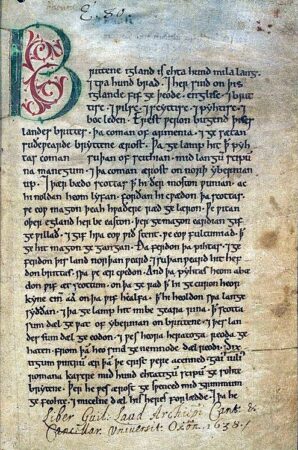 Brittene igland is ehta hund mila lang.
⁊ tƿa hund brad. ⁊ her sind on þis
iglande fif geþeode. englisc. ⁊ brit
tisc. ⁊ ƿilsc. ⁊ scyttisc. ⁊ pyhtisc. ⁊
boc leden. Erest ƿeron bugend þises
landes brittes. þa coman of armenia. ⁊ gesætan
suðeƿearde bryttene ærost. Þa gelamp hit ꝥ pyh
tas coman suþan of scithian. mid langum scipū
na manegum. ⁊ þa coman ærost on norþ ybernian
up. ⁊ þær bædon scottas ꝥ hi ðer moston ƿunian. ac
hi noldan heom lyfan. forðan hi cƿædon þa scottas.
ƿe eoƿ magon þeah hƿaðere ræd gelæron. Ƿe ƿitan
oþer egland her be easton. þer ge magon eardian gif
ge ƿillað. ⁊ gif hƿa eoƿ ƿiðstent. ƿe eoƿ fultumiað. ꝥ
ge hit magon gegangan. Ða ferdon þa pihtas. ⁊ ge
ferdon þis land norþanƿeard. ⁊ suþanƿeard hit hef
don brittas. sƿa ƿe ær cƿedon. And þa pyhtas heom abæ
don ƿif æt scottum. on þa gerad ꝥ hi gecuron heora
kyne cinn aa on þa ƿif healfa. ꝥ hi heoldon sƿa lange
syððan. ⁊ þa gelamp hit imbe geara rina. ꝥ scotta
sum dæl geƿat of ybernian on brittene. ⁊ þes lan
des sum dæl geeodon. ⁊ ƿes heora heratoga reoda ge
haten. from þā heo sind genemnode dæl reodi. Sixte
gum ƿintrum ær þam þe crist ƿere acenned. gaius iuliꝰ
romana kasere mid hund ehtatigum scipum gesohte
brytene. Þer he ƿes ærost geƿenced mid grimmum
gefeohte. ⁊ micelne dæl his heres forlædde. ⁊ þa he
Liber Guil: Laud Archiepi Cant. &
Cancellar. Universit. Oxon. 1638.